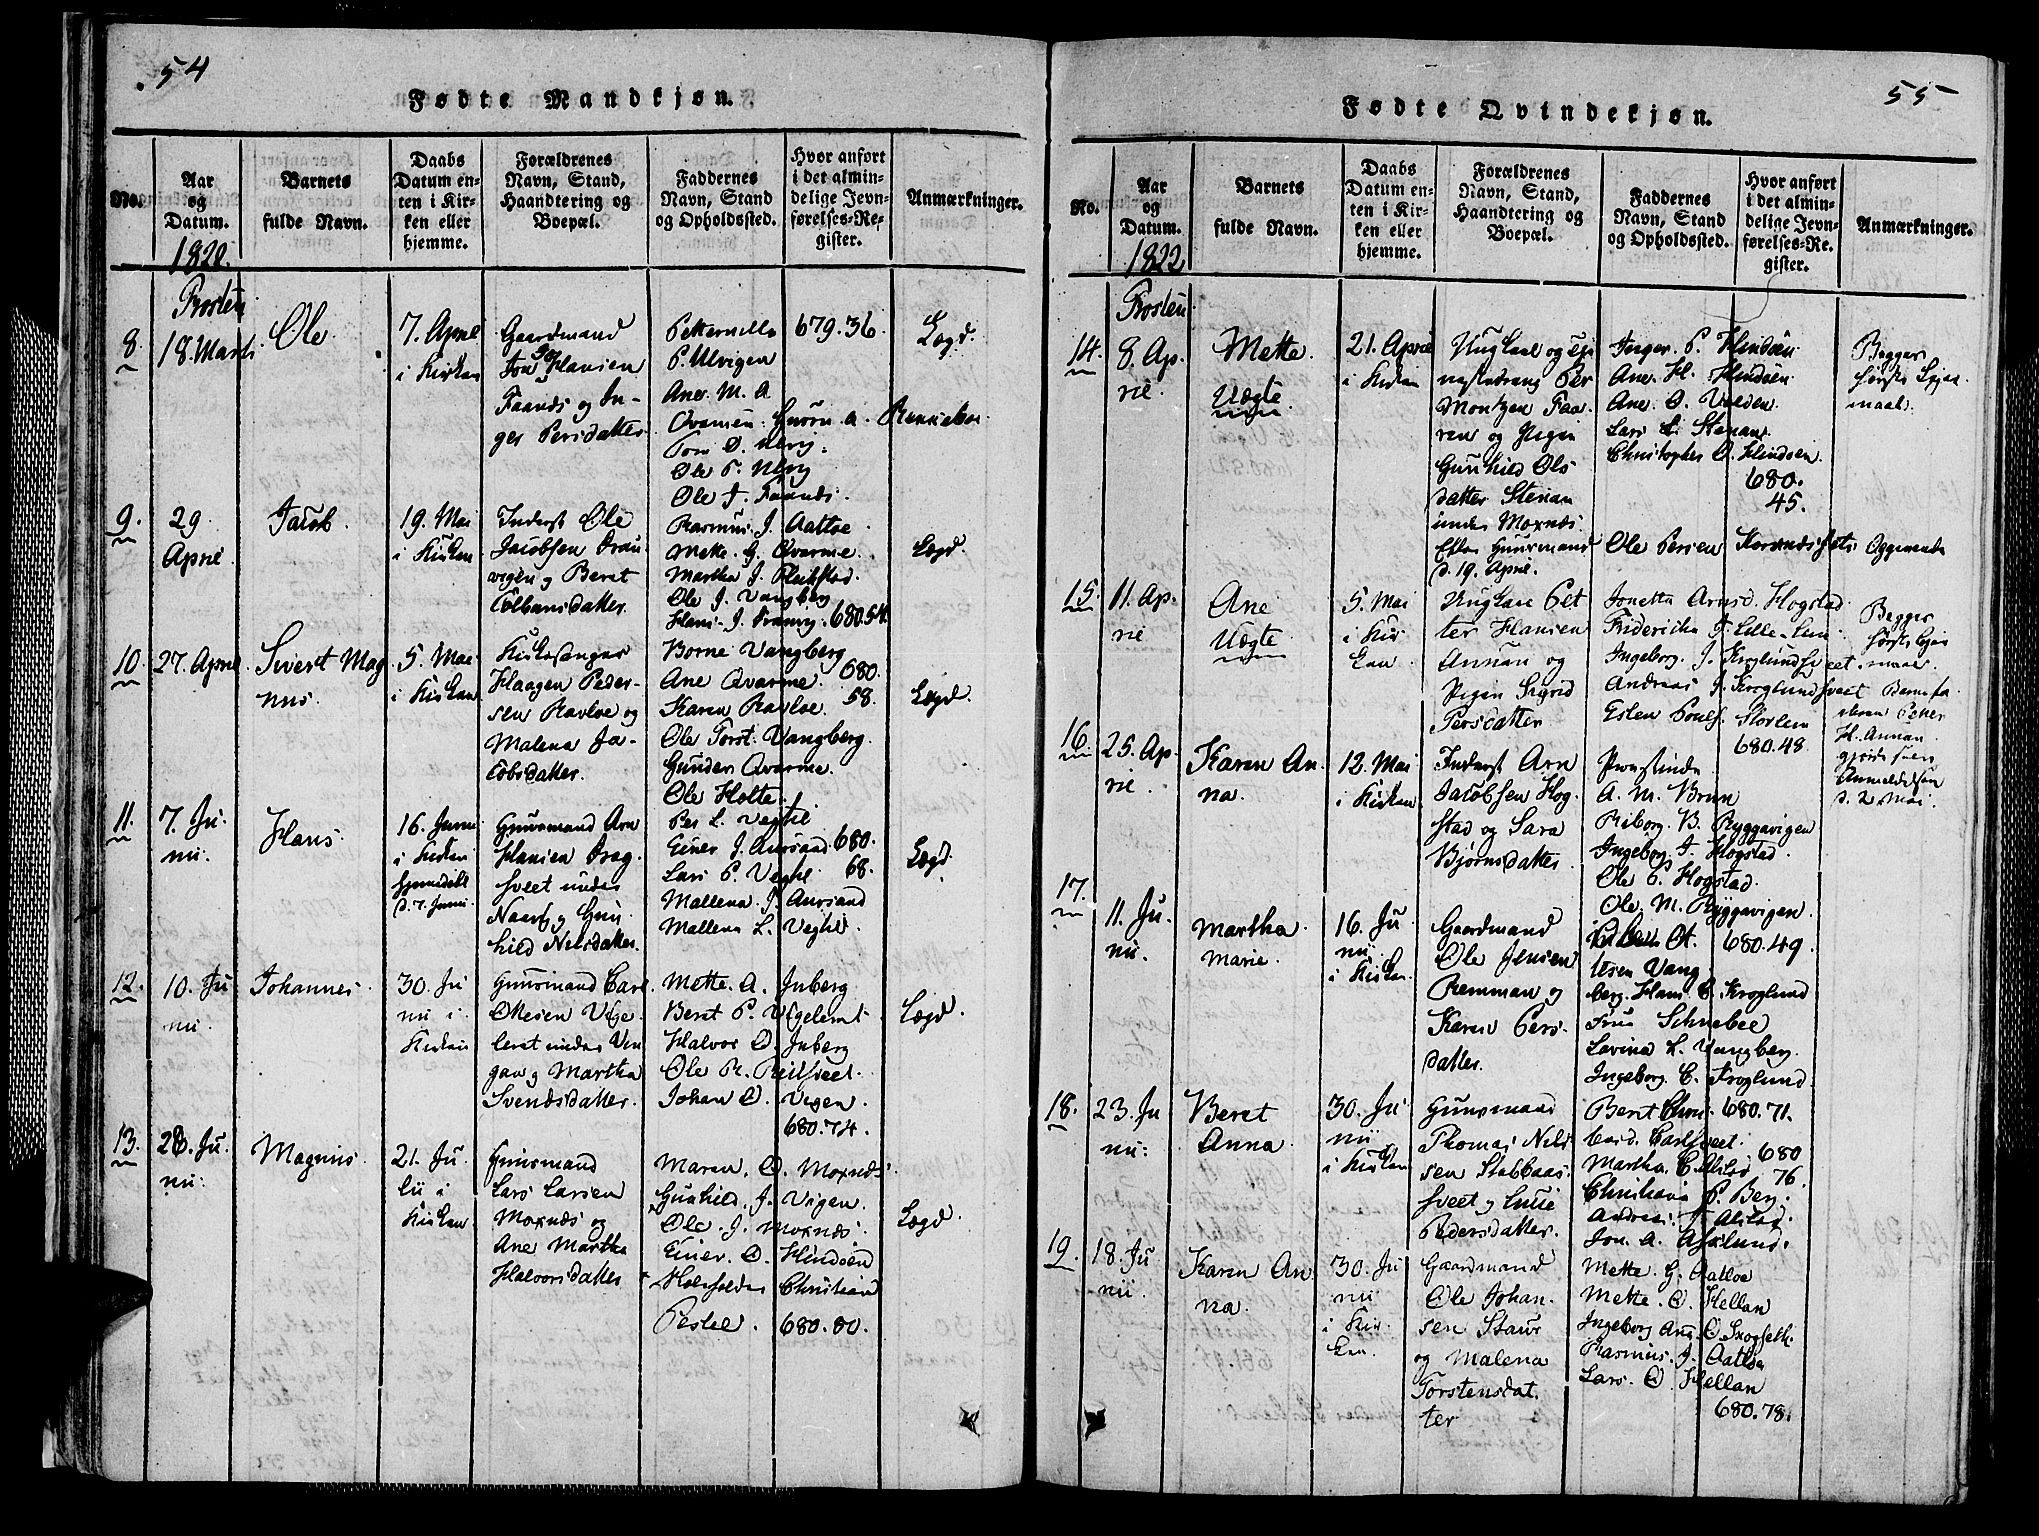 54
Fødte Mandkjøn.
No.
Aar
og
Datum.
1822.
Barnets
fulde Navn.
Daabs
Datum en-
ten i Kir-
ken eller
hjemme.
Forældrenes
Navn, Stand,
Haandtering og
Boepæl.
Faddernes
Navn, Stand
og Opholdssted.
Hvor anført
i det almin-
delige Jevn-
førelses-Re-
gister.
Anmærkninger.
Frosten
8.
18. Marti
Ole
7. April
i Kirken
Gaardmand
Jon Hansen
Faands og In-
ger Persdatter
Petternille
P. Ulvigen
Ane. M. A
Qvamen. Guörn. a. Rennebu.
Ole P. Nerg
Ole J. Faands.
679.36
Lægd.
9.
29
April
Jacob.
19. Mai
i Kirken
Inderst Ole
Jacobsen
vigen og Beret
datter
Rasmus. J. Aatloe.
Mette. G. Qvarme.
Martha J.
Ole J. Vangberg
Hans. J. 680.54.
Lægd.
10.
27. April
Sivert Mag
nus.
5. Mai
i Kirken
Kirkesanger
Haagen Peder-
sen Ravloe og
Malena Ja-
cobsdatter.
Borne Vangberg
Ane Qvarme. 680.
Karen Ravloe. 58.
Ole Torst. Vangberg.
Gunder Qvarme.
Ole Holte.
Lægd.
11.
7. Ju-
nii.
Hans
16. Junii
i Kirken
hjemmedøbt
d. 7. Junii.
Huusmand Arn
Hansen Drag-
sveet under
og Gun-
hild Nilsdatter.
Per L. Veghel
Einer J. Aursand 680.
Lars P. Veghel 68.
Mallena. J. Aursand
Mallena L. Veghel.
Lægd.
12.
10. Ju
nii.
Johannes.
30. Ju
nii i
Kirken
Huusmand Carl
Ottesen
under
og Martha
Svendsdatter.
Mette. A. Inberg
Beret P.
Halvor O. Inberg
Ole R.
Johan O. Vigen.
680.74.
Lægd.
13.
28. Ju-
nii.
Magnus.
21. Ju-
lii i
Kirken
Huusmand
Lars Larsen
Moxnæs og
Ane Martha
Halvorsdatter
Maren. O. Moxnæs.
Gunhild. J. Vigen.
Ole. J. Moxnæs.
Einer. O. Hindsen
Christian
680.80.
Lægd.
55
Fødte Qvindekjøn.
No.
Aar
og
Datum.
1822
Barnets
fulde Navn.
Daabs
Datum en-
ten i Kir-
ken eller
hjemme.
Forældrenes
Navn, Stand,
Haandtering og
Boepæl.
Faddernes
Navn, Stand
og Opholdssted.
Hvor anført
i det almin-
delige Jevn-
førelses-Re-
gister.
Anmærkninger.
Frosten.
14.
8. Ap-
ril.
Mette.
Uægte.
21. April
i Kirken
Ungkarl og
Per
Montzen Faa-
ren og Pigen
Gunhild Ols-
datter Stenan
under Moxnæs.
d. 19. April.
Inger. P. Hindsen
Ane. H. Hindsen.
Ane. O. Valden.
Lars L. Stenan.
Christopher O. Hindsen.
680.
45.
Ole Persen
Begges
første Leier-
maal.
15.
11. Ap-
ril
Ane
Uægte.
5. Mai
i Kir-
ken
Ungkarl Pet-
ter Hansen
Annan og
Pigen Sigrid
Persdatter
Jonetta Arnsd. Hogstad.
Friderikka J. Lille-Lein
Ingeborg. J. Kroglundsveet.
Andreas J. Kroglundsveet
Esten Poulf. Storlein
680.48.
Begges
første Leier-
maal.
Petter
H. Annan.
gjorde sin
Anmeldelse
d. 2. Mai.
16.
25. Ap-
ril.
Karen An-
na.
12. Mai
i Kirken
Inderst Arn
Jacobsen Hog-
stad og Sara
Bjørnsdatter
Provstinde
A. M. Brun
Riborg. B. Ryggavigen
Ingeborg. J. Hogstad.
Ole P. Hogstad.
Ole. M. Ryggavigen.
680.49.
17.
11. Ju-
nii.
Martha
Marie.
16. Ju-
nii
i Kirken.
Gaardmand
Ole Jensen
Remman og
Karen Pers-
datter.
tesen Vang-
berg. Hans. C. Kroglund
Frue Schnebel
Lovina L. Vangberg.
Ingeborg. C. Kroglund.
18.
23. Ju
nii.
Beret
Anna.
30. Ju
nii
i Kirken
Huusmand
Thomas Nils-
sen Stabbaas-
sveet og Lusie
Pedersdatter.
Beret 680.71.
Carlsveet.
Martha. C. Alstad 680
Christians P. Berg. 76.
Andreas J. Alstad.
Jon. A. Asklund.
19.
18. Ju
nii.
Karen An-
na.
30. Ju
nii
i Kir-
ken.
Gaardmand
Ole Johan-
sen Staur
og Malena
Torstensdat-
ter
Mette. G. Aatloe
Mette. O. Hellan
Ingeborg Ane. O. Skogseth.
Rasmus. J. Aatloe
Lars. O. Hellan
680.78.